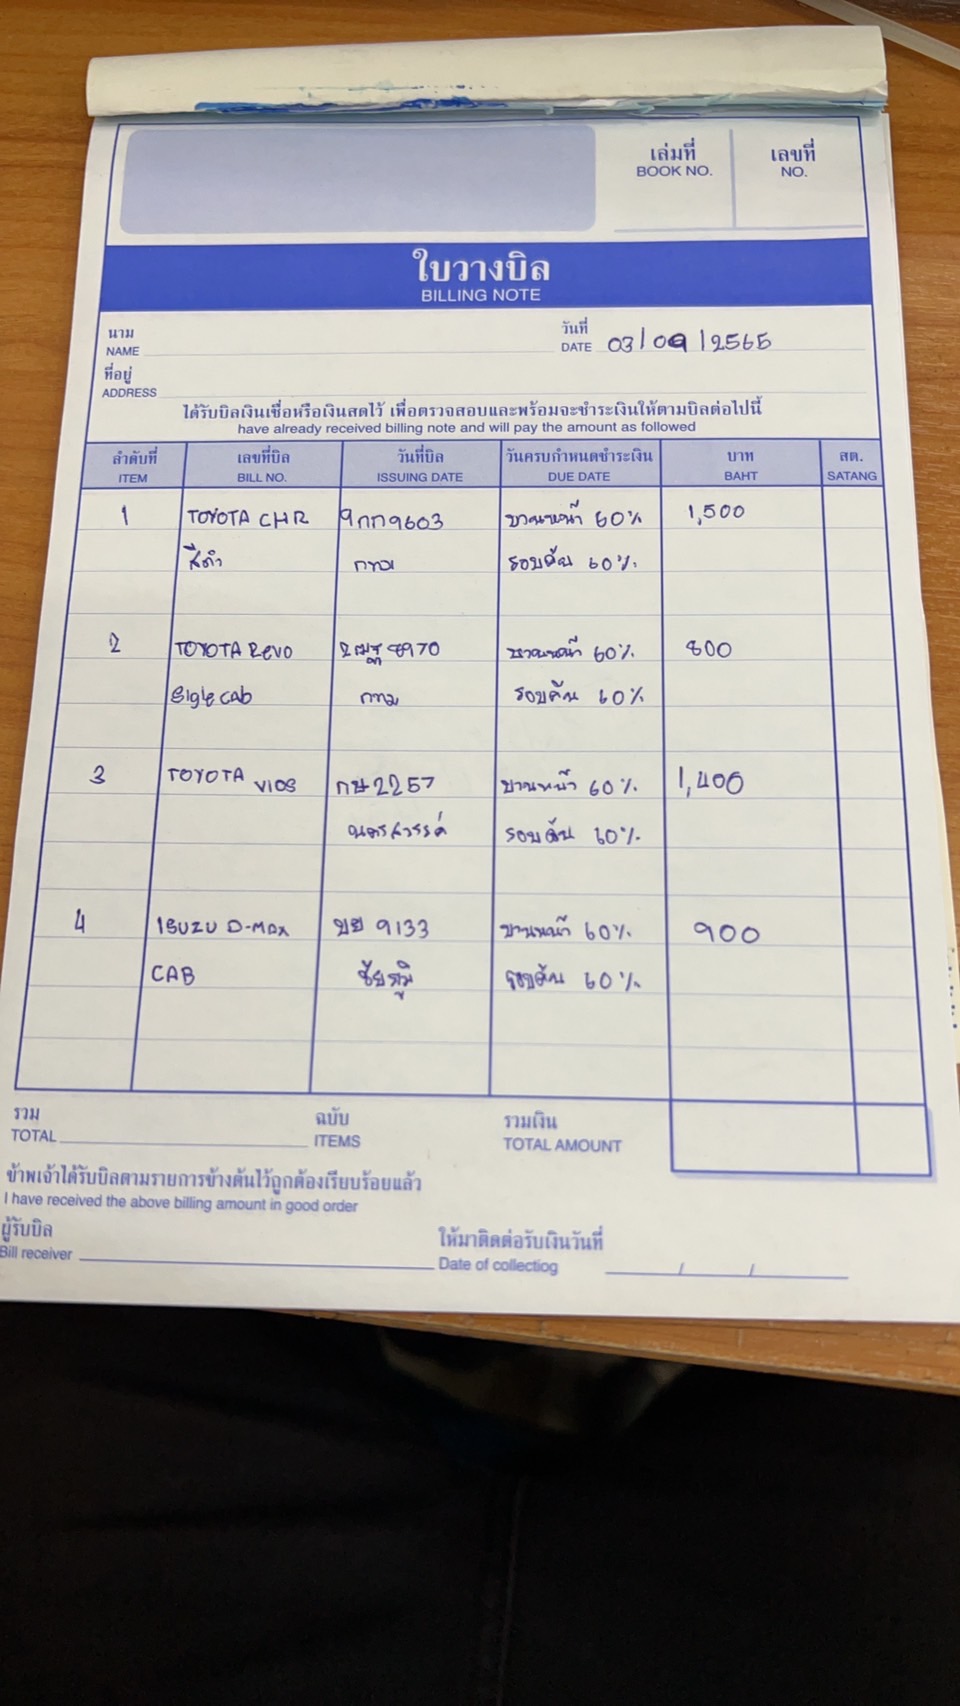 เล่มที่ เลขที่
BOOK NO. NO.
ใบวางบิล
BILLING NOTE
นาม วันที่
NAME DATE 03/09/2565
ที่อยู่
ADDRESS
ได้รับบิลเงินเชื่อหรือเงินสดไว้ เพื่อตรวจสอบและพร้อมจะชำระเงินให้ตามบิลต่อไปนี้
have already received billing note and will pay the amount as followed
ลำดับที่ เลขที่บิล วันที่บิล วันครบกำหนดชำระเงิน บาท สต.
ITEM BILL NO. ISSUING DATE DUE DATE BAHT SATANG
1 TOYOTA CHR 9กก9603 บานหน้า 60% 1,500
สีดำ กทม รอบคัน 60%
2 TOYOTA Revo 2ฒฐ 8970 บานหน้า 60% 800
Sigle cab กทม รอบคัน 60%
3 TOYOTA VIOS กษ2257 บานหน้า 60% 1,400
นครสวรรค์ รอบคัน 60%
4 ISUZU D-MAX บย 9133 บานหน้า 60% 900
CAB ชัยภูมิ รอบคัน 60%
รวม ฉบับ รวมเงิน
TOTAL ITEMS TOTAL AMOUNT
ข้าพเจ้าได้รับบิลตามรายการข้างต้นไว้ถูกต้องเรียบร้อยแล้ว
I have received the above billing amount in good order
ผู้รับบิล ให้มาติดต่อรับเงินวันที่
Bill receiver Date of collectiog / /